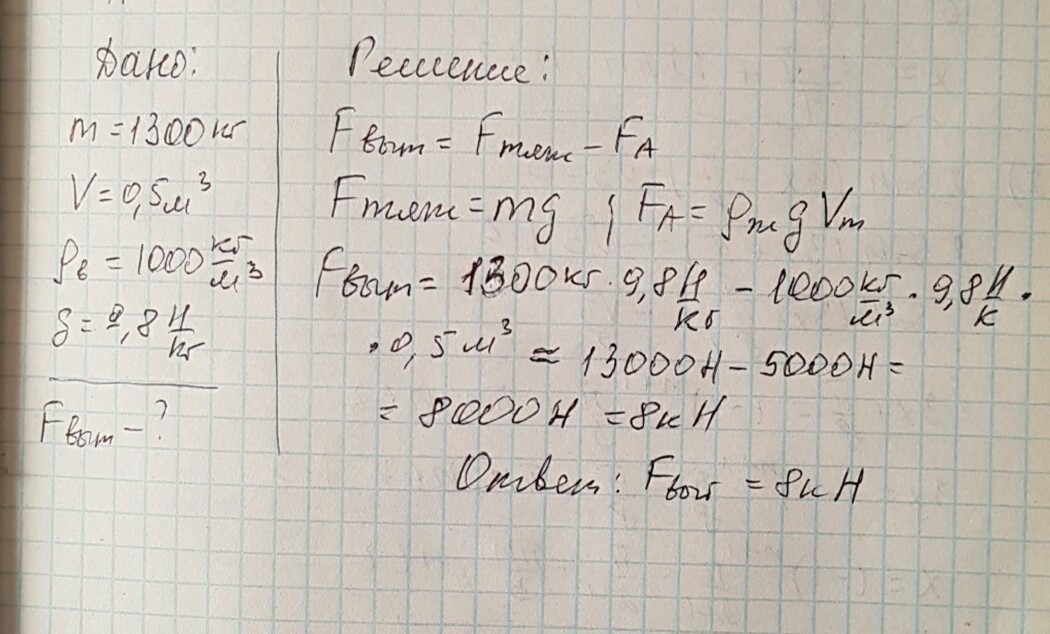 Дано:
m = 1300 кг
V = 0,5 м³
ρв = 1000 кг/м³
g = 9,8 Н/кг
Fвыт - ?
Решение:
Fвыт = Fтяж - FA
Fтяж = mg ; FA = ρж g Vт
Fвыт = 1300 кг · 9,8 Н/кг - 1000 кг/м³ · 9,8 Н/к ·
· 0,5 м³ ≈ 13000Н - 5000Н =
= 8000Н = 8кН
Ответ: Fвыт = 8кН